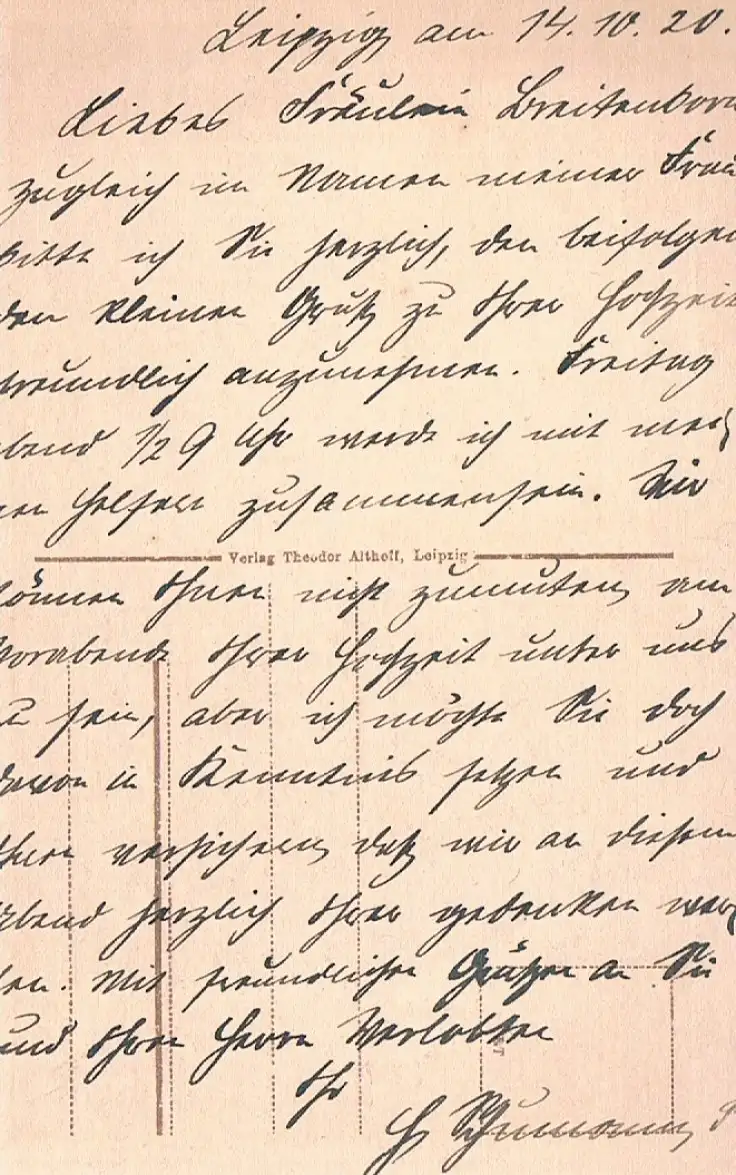 Leipzig am 14.10.20.
Liebes Fräulein Breitenborn
zugleich im Namen meiner Frau
bitte ich Sie herzlich, den beifolgen
den kleinen Gruß zu Ihrer Hochzeit
freundlich anzunehmen. Freitag
abend 1/2 9 Uhr werde ich mit mei¬
nen Helfern zusammensein. Wir
Verlag Theodor Althoff, Leipzig
können Ihnen nicht zumuten, am
Vorabende Ihrer Hochzeit unter uns
zu sein, aber ich möchte Sie doch
davon in Kenntnis setzen und
Ihnen versichern, daß wir an diesem
Abend herzlich Ihrer gedenken wer¬
den. Mit freundlichen Grüßen an Sie
und Ihren Herrn Verlobten
Ihr
H Schumann